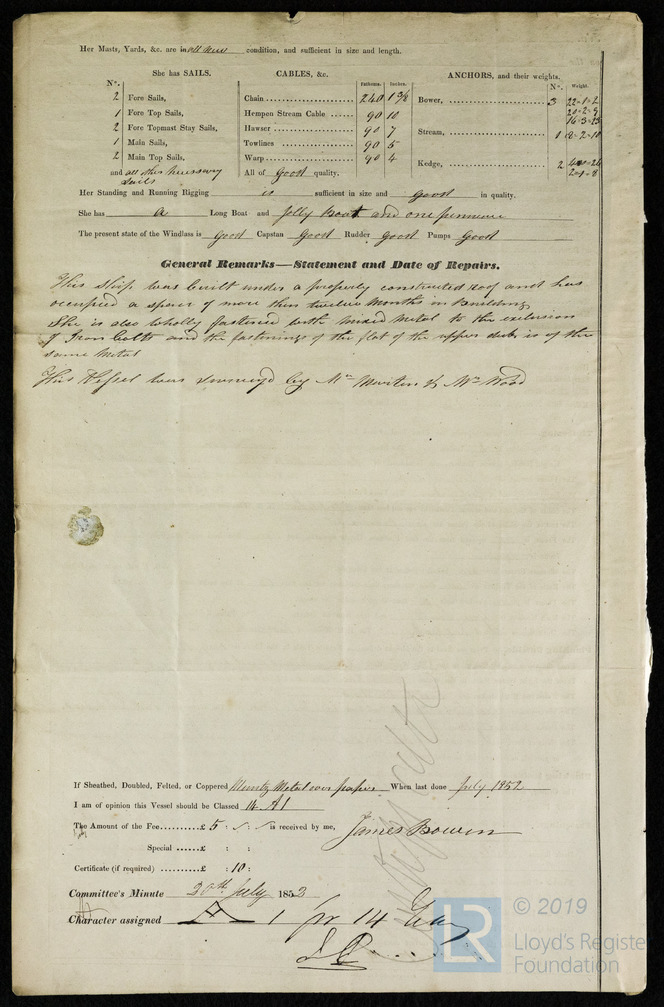 Her Masts, Yards, &c. are in all new condition, and sufficient in size and length.
She has SAILS.
N°.
2 Fore Sails,
1 Fore Top Sails,
2 Fore Topmast Stay Sails,
1 Main Sails,
2 Main Top Sails,
and all other necessary
sails
CABLES, &c. Fathoms. Inches.
Chain 240 1 5/8
Hempen Stream Cable 90 10
Hawser 90 7
Towlines 90 5
Warp 90 4
All of Good quality.
ANCHORS, and their weights.
N°. Weight.
Bower, 3 22-1-2
20-2-9
16-3-23
Stream, 1 8-2-10
Kedge, 2
Her Standing and Running Rigging is sufficient in size and good in quality.
She has a Long Boat and Jolly Boat and one pinnace
The present state of the Windlass is Good Capstan Good Rudder Good Pumps Good
General Remarks—Statement and Date of Repairs.
This Ship was built under a properly constructed roof and has
occupied a space of more then twelve Months in Building
She is also wholly fastened with mixed Metal to the exclusion
of Iron bolts and the fastenings of the flat of the upper deck is of the
same Metal
This Vessel was surveyed by Mr Martin & Mr Wood
If Sheathed, Doubled, Felted, or Coppered Muntz Metal over paper When last done July 1852
I am of opinion this Vessel should be Classed 14 A1
The Amount of the Fee £ 5 : is received by me, James Bowen
Special £ : :
Certificate (if required) £ : 10 :
Committee's Minute 20th July 1853
Character assigned A 1 for 14 Years
© 2019
LR
Lloyd's Register
Foundation